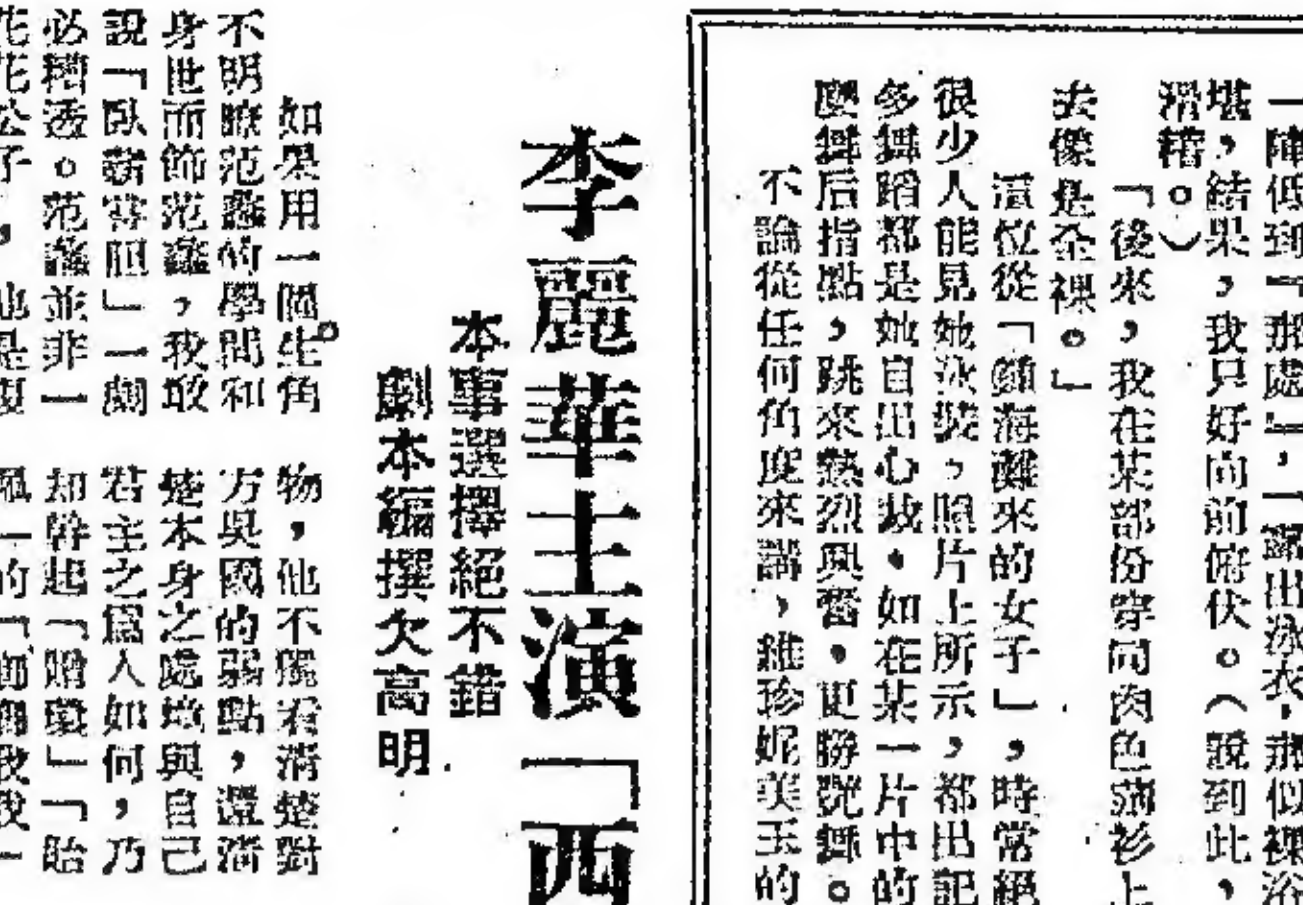 一陣低到「那處」,一露出泳衣,那似裸浴
堪,結果,我只好向前俯伏。(說到此,
滑稽。)
「後來,我在某部份穿肉色薄衫上
去像是全裸。」
這位從「顏海難來的女子」,時常絕
很少人能見她泳裝,照片上所示,都出記
多舞蹈都是她自出心裁。如在某一片中的
麼舞后指點,跳來熱烈興奮。更勝脫舞。
不論從任何角度來講,維珍妮美玉的
李麗華主演「西
本事選擇絕不錯
劇本編撰欠高明
如果用一個生角。
不明瞭范蠡的學問和
身世而飾范蠡,我敢
說「臥薪嘗胆」一劇
必糟透。范蠡並非一
花花公子,他是復
物,他不獨看清楚對
方吳國的弱點,還清
楚本身之處境與自己
君主之為人如何,乃
却幹起「贈璧」「貽